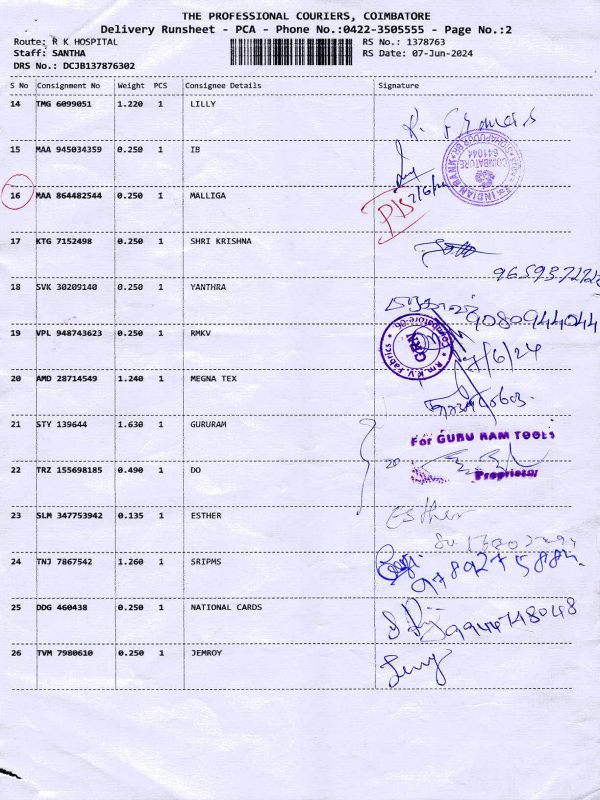 THE PROFESSIONAL COURIERS, COIMBATORE
Delivery Runsheet - PCA - Phone No.:0422-3505555 - Page No.:2
Route: R K HOSPITAL
RS No.: 1378763
Staff: SANTHA
RS Date: 07-Jun-2024
DRS No.: DCJB137876302
S No Consignment No Weight PCS Consignee Details Signature
14 TMG 6099051 1.220 1 LILLY
15 MAA 945034359 0.250 1 IB
INDIAN BANK
COIMBATORE
641044
16 MAA 864482544 0.250 1 MALLIGA
17 KTG 7152498 0.250 1 SHRI KRISHNA
18 SVK 30209140 0.250 1 YANTHRA
9080944044
19 VPL 948743623 0.250 1 RMKV
7/6/24
20 AMD 28714549 1.240 1 MEGNA TEX
21 STY 139644 1.630 1 GURURAM
For GURU RAM TOOLS
22 TRZ 155698185 0.490 1 DO
Proprietor
23 SLM 347753942 0.135 1 ESTHER
Esther
24 TNJ 7867542 1.260 1 SRIPMS
25 DDG 460438 0.250 1 NATIONAL CARDS
26 TVM 7980610 0.250 1 JEMROY